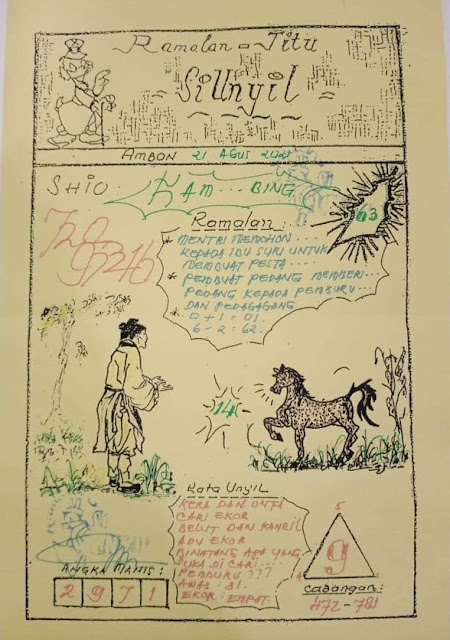 Ramalan - Jitu
SiUnyil
AMBON 21 AGUS 2021
SHIO: KAM... BING
63
Ramalan:
* MENTRI MEMOHON....
KEPADA IBU SURI UNTUK
MEMBUAT PESTA...
* PEMBUAT PEDANG MEMBERI...
PEDANG KEPADA PEMBURU...
DAN PEDAGAGANG
* 0 + 1 = 01.
6 - 2 = 62.
14
Kata Unyil
KERA DAN ONTA
CARI EKOR
BELUT DAN KANCIL
ADU EKOR
BINATANG APA YANG
SUKA DI CARI....
PEMBURU ???
AWAS : 31.
EKOR : EMPAT.
5
9
4
ANGKA MANIS:
2 9 7 1
Cadangan:
472 - 781